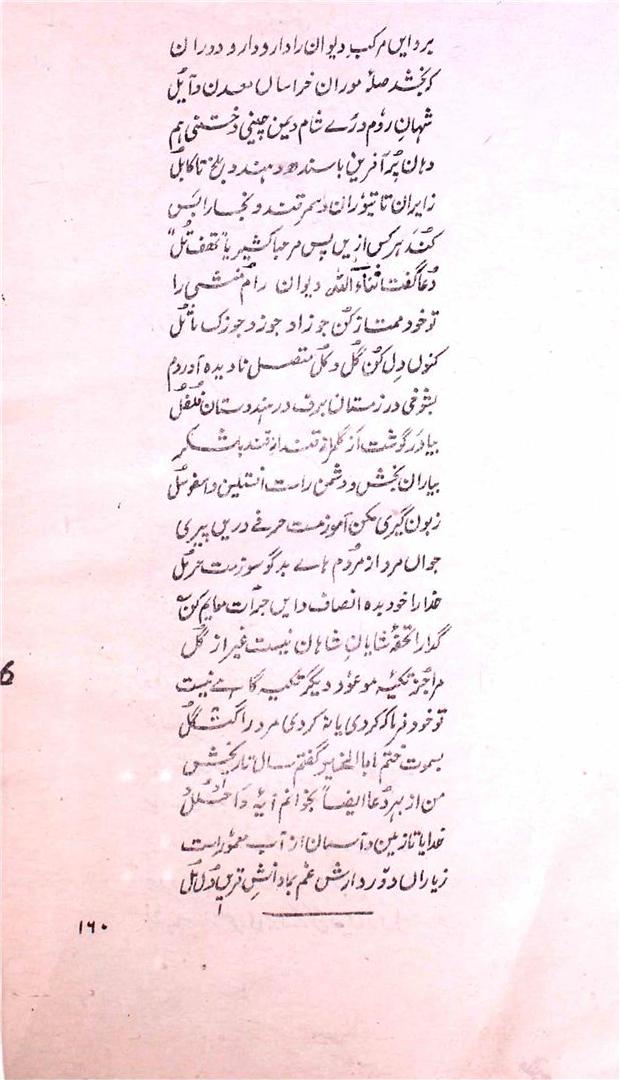 برد ایں مرکبِ دیوان را دار و دار و دوران
کہ بخشد صلۂ موران خراساں معدن و آیُل
شہانِ روم و رُے شام و یمن چینی و ختنی ہم
دہان پُر آفرین با سندھ و ہند و بلخ تا کابُل
ز ایران تا تیوران و سمرقند و بخارا بس
کُند ہر کس ازیں پس مرحبا کشیر یا "تھف تُل"
دُعا گفت ثناءاللہ دیوان رام مُنشی را
تو خود ممتاز کُن جو زاد جوزد جوزک تاتُل
کنوں دِل کُن گُل و کُل متصل نادیدہ آوردم
بشوفی در زمستاں برف در ہندوستان فُلفُل
بیاور گوشت از
بیاران بخش و دشمن راست انستین و اسفوسُل
زبون گیری مکن آموزمت حرفے دریں پیری
جواں مرد از مردُم ہاے بدگو سوزمت حرمُل
خدا را خود بدہ انصاف و ایں جرأت معایم کن
گدا را تحفۂ شایانِ شاہان نیست غیر از گُل
مرا جُز تکیۂ موعود دیگر تکیہ گاہے نیست
تو خود فرما کہ کردی یا نہ کردی مرد را گشتگُل
بسموت ختم ابا الخیر گفتم سال تاریخش
من از بہرِ دُعا ایضاً بخوانم آیۂ وَاحلُل
خدایا تا زمین و آسمان از آب معمور است
ز یاراں دور دارش غم بماوانش قریں دُل دُل
۱۶۰
6